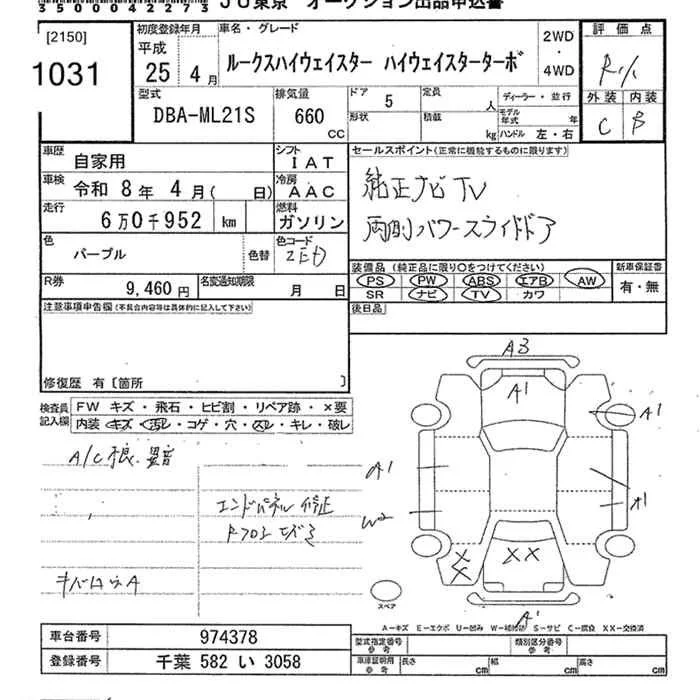 35000422 73 JU東京 オークション出品申込書
[2150]
1031
初度登録年月
平成
25年 4月
車名・グレード
ルークスハイウェイスター ハイウェイスターターボ
2WD
・
4WD
評価点
R1/
外装 内装
C B
型式
DBA-ML21S
排気量
660
CC
ドア 5
形状
定員 人
積載 kg
ディーラー・並行
モデル年式 年
ハンドル 左・右
車歴
自家用
シフト
IAT
車検
令和 8年 4月( 日)
冷房
AAC
走行
6万0千952 km
燃料
ガソリン
セールスポイント(正常に機能するものに限ります)
純正ナビ TV
両側パワースライドドア
色
パープル
色替
色コード
装備品(純正品に限り○をつけてください)
PS PW ABS エアB AW
SR ナビ TV カワ
新車保証書
有・無
R券
9,460円
名変通知期限
月 日
後日品
注意事項申告欄(不具合内容等は具体的に記入して下さい)
修復歴 有〔箇所 〕
検査員記入欄
FW キズ・飛石・ヒビ割・リペア跡・×要
内装 キズ・汚レ・コゲ・穴・スレ・キレ・破レ
A/C
エンドパネル修正
A3
A1
A1
A1
A1
W2
XX
XX
A1
スペア
A-キズ E-エクボ U-凹み W-補修跡 S-サビ C-腐食 XX-交換済
車台番号 974378
登録番号 千葉 582 い 3058
型式指定番号 参考
類別区分番号 参考
車庫証明用 参考
長さ cm
幅 cm
高さ cm